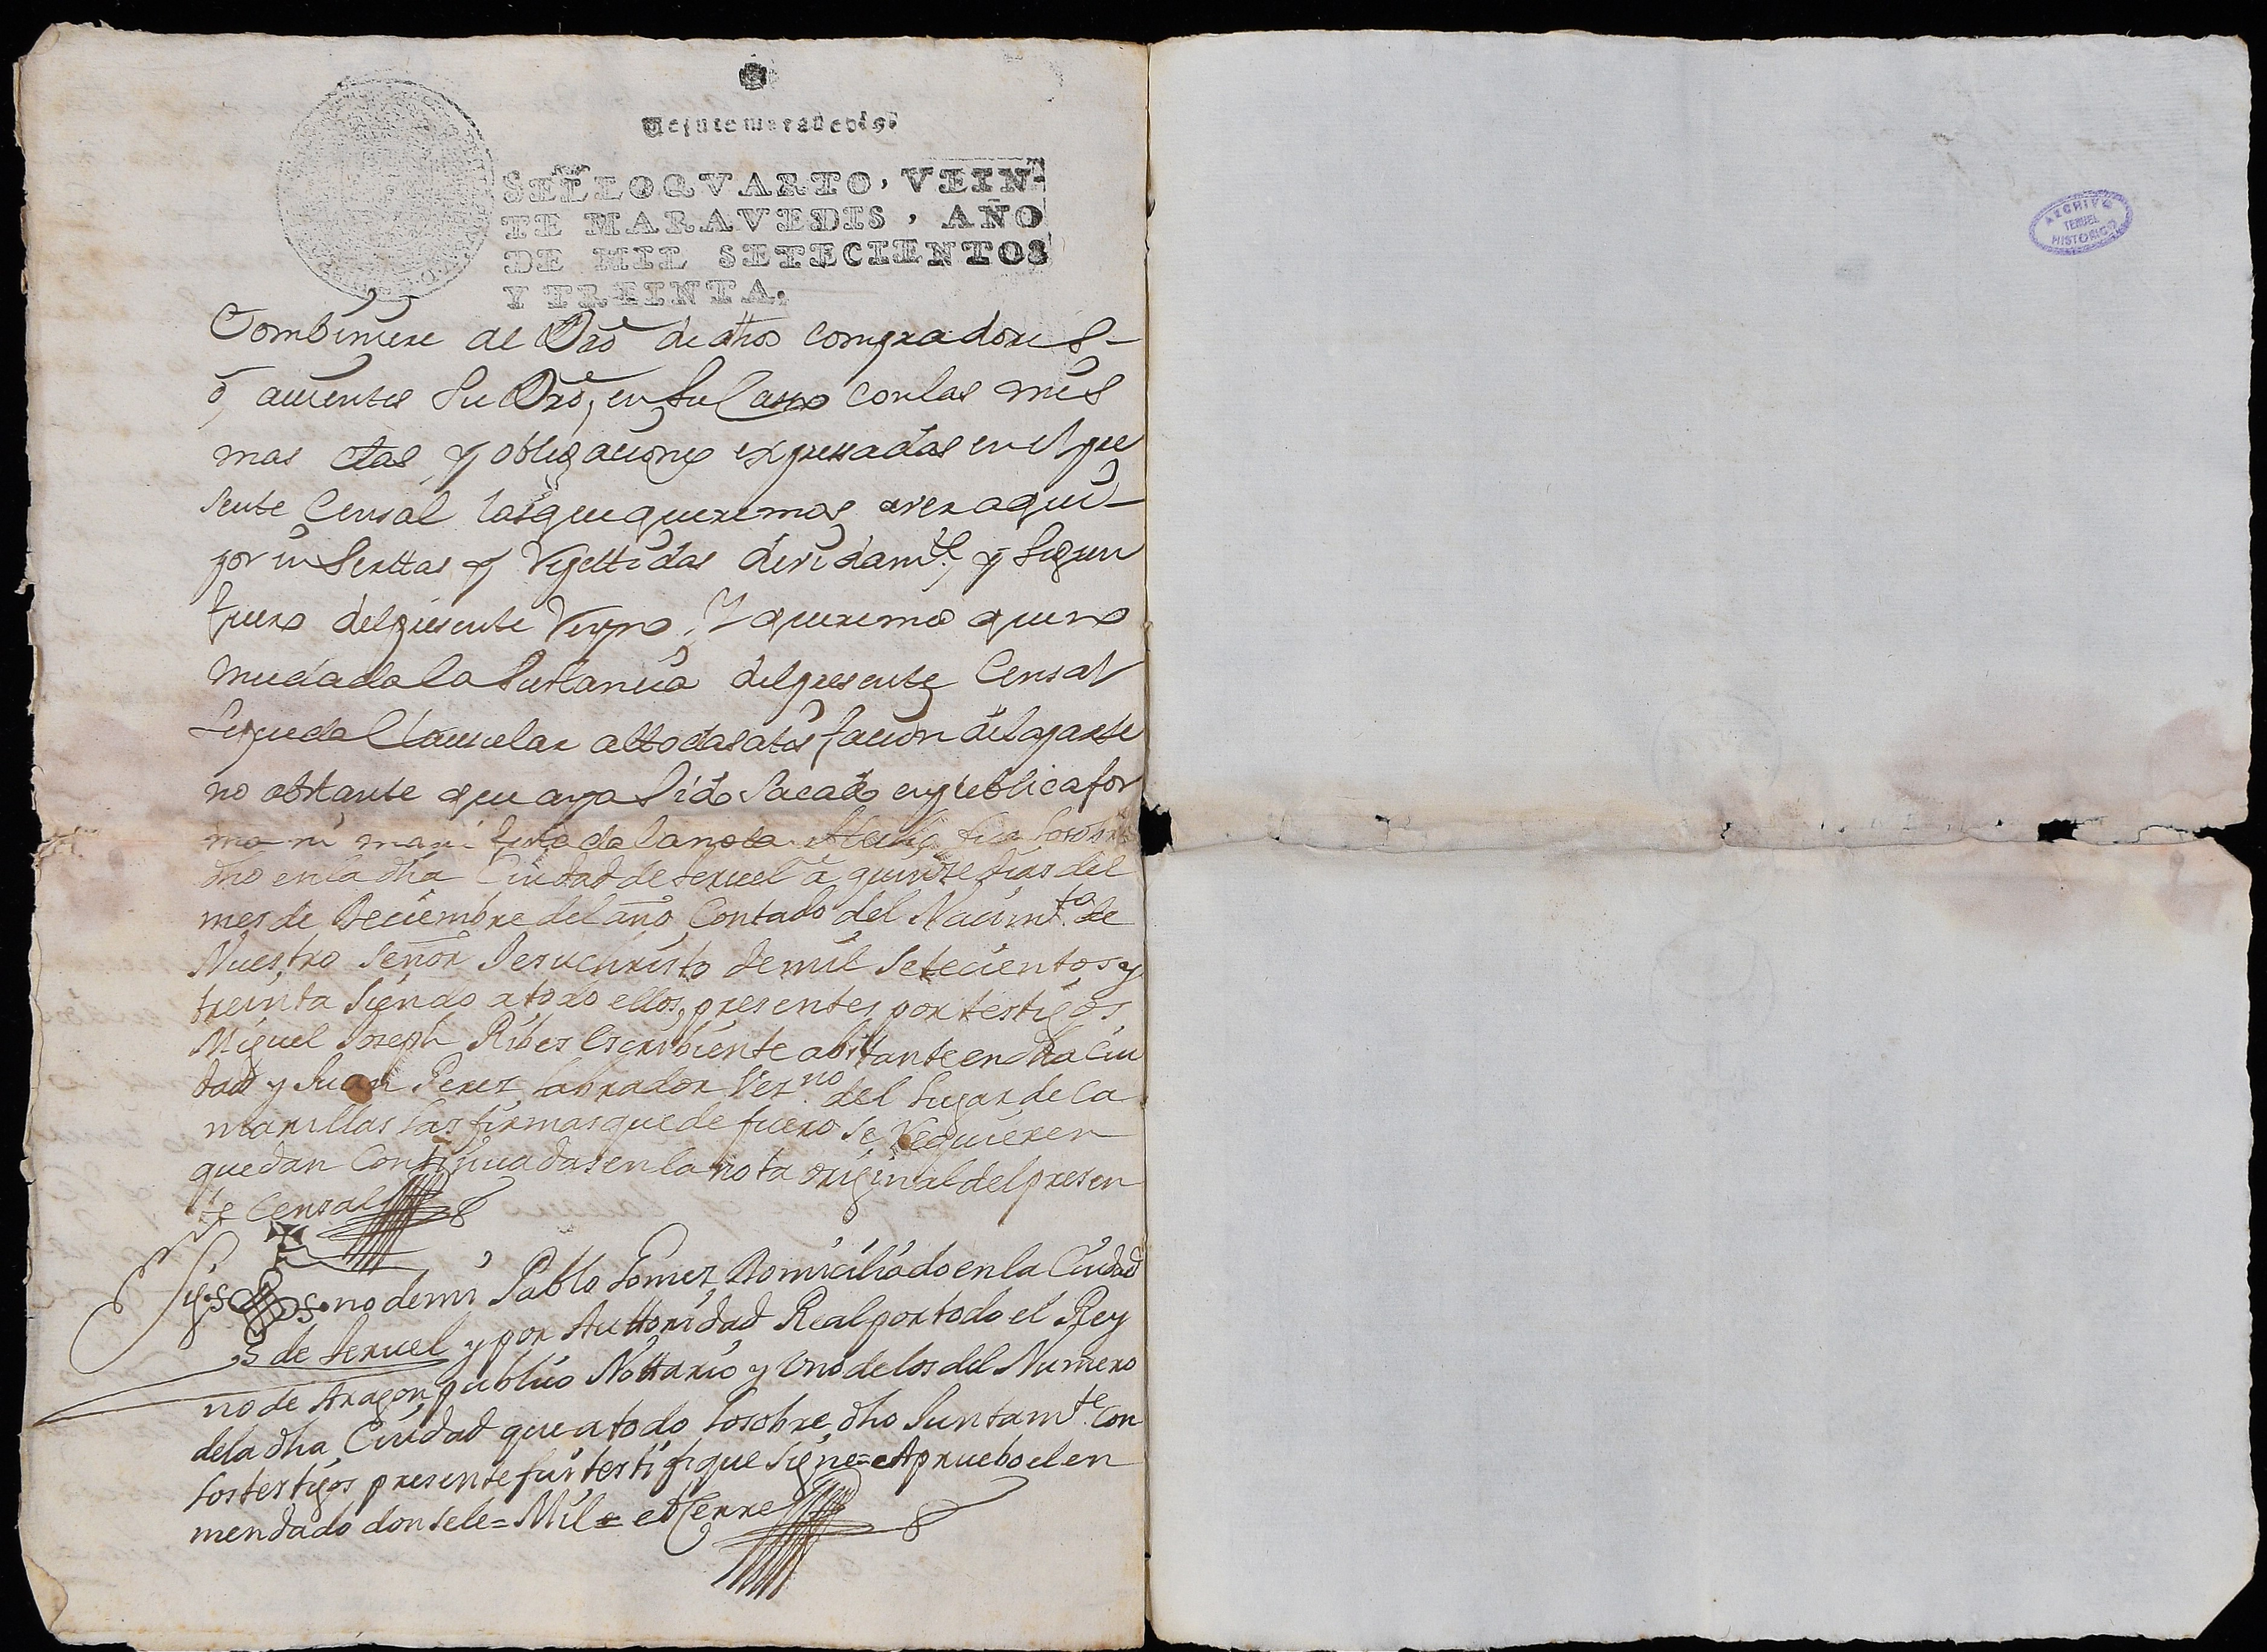 Veinte maravedis.
SELLO QVARTO, VEIN-
TE MARAVEDIS, AÑO
DE MIL SETECIENTOS
Y TREINTA.
Combiniere al dro de dhos compradores
ô, auientes Su dro, en Su Casso con las mis
mas Clas y obligaciones expressadas en el pre
sente Censal las que queremos aver aqui
por insertas y Repettidas devidamte, y Segun
fuero del presente Reyno, Y queremos que no
mudada la Sustancia del presente Censal
Se pueda Clausular a toda satisfacion de la parte
no obstante que aya Sido Sacado en publica for
ma ni manifestada la nota. Hecho fue lo sobre
dho en la dha Ciudad de teruel â quinze dias del
mes de Deciembre del año Contado del Nacimto de
Nuestro Señor Jesuchristo de mil Setecientos y
treinta Siendo a todo ello, presentes por testigos
Miguel Joseph Ribes Escribiente abitante en dha Ciu
dad y Juan Perez Labrador Vezno del Lugar de Ca
marillas las firmas que de fuero Se Requieren
quedan Continuadas en la nota original del presen
te Censal
Sig-no de mi Pablo Gomez Domiciliado en la Ciudad
de Teruel y por Auttoridad Real por todo el Rey
no de Aragon, publico Nottario y Uno de los del Numero
de la dha Ciudad que a todo lo sobre dho Juntamte Con
los testigos presente fui testifique Signe = Apruebo el en
mendado donse lee = Mil = et Cerre
ARCHIVO
TERUEL
HISTORICO